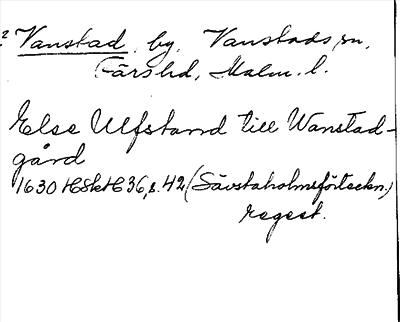 2 Vanstad, by, Vanstads sn,
Färs hd, Malm. l.
Else Ulfstand till Wanstad-
gård
1630 HSH H 36, s. 42 (Sävstaholmsförteckn.)
regest.